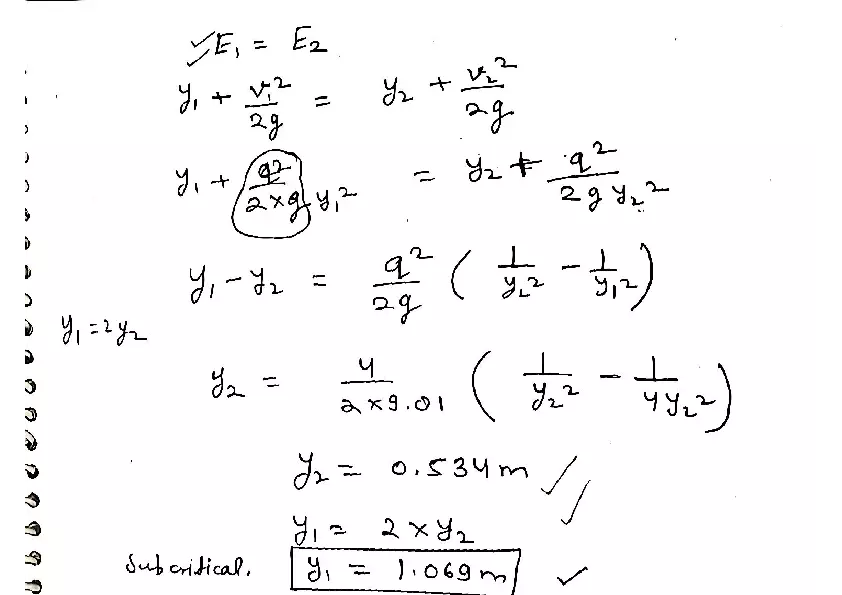 ✓E₁ = E₂
y₁ + v₁²/2g = y₂ + v₂²/2g
y₁ + q²/2×g y₁² = y₂ + q²/2g y₂²
y₁ - y₂ = q²/2g ( 1/y₂² - 1/y₁² )
y₁ = 2y₂
y₂ = 4/2×9.01 ( 1/y₂² - 1/4y₂² )
y₂ = 0.534m ✓✓
y₁ = 2 × y₂
Subcritical. y₁ = 1.069m ✓